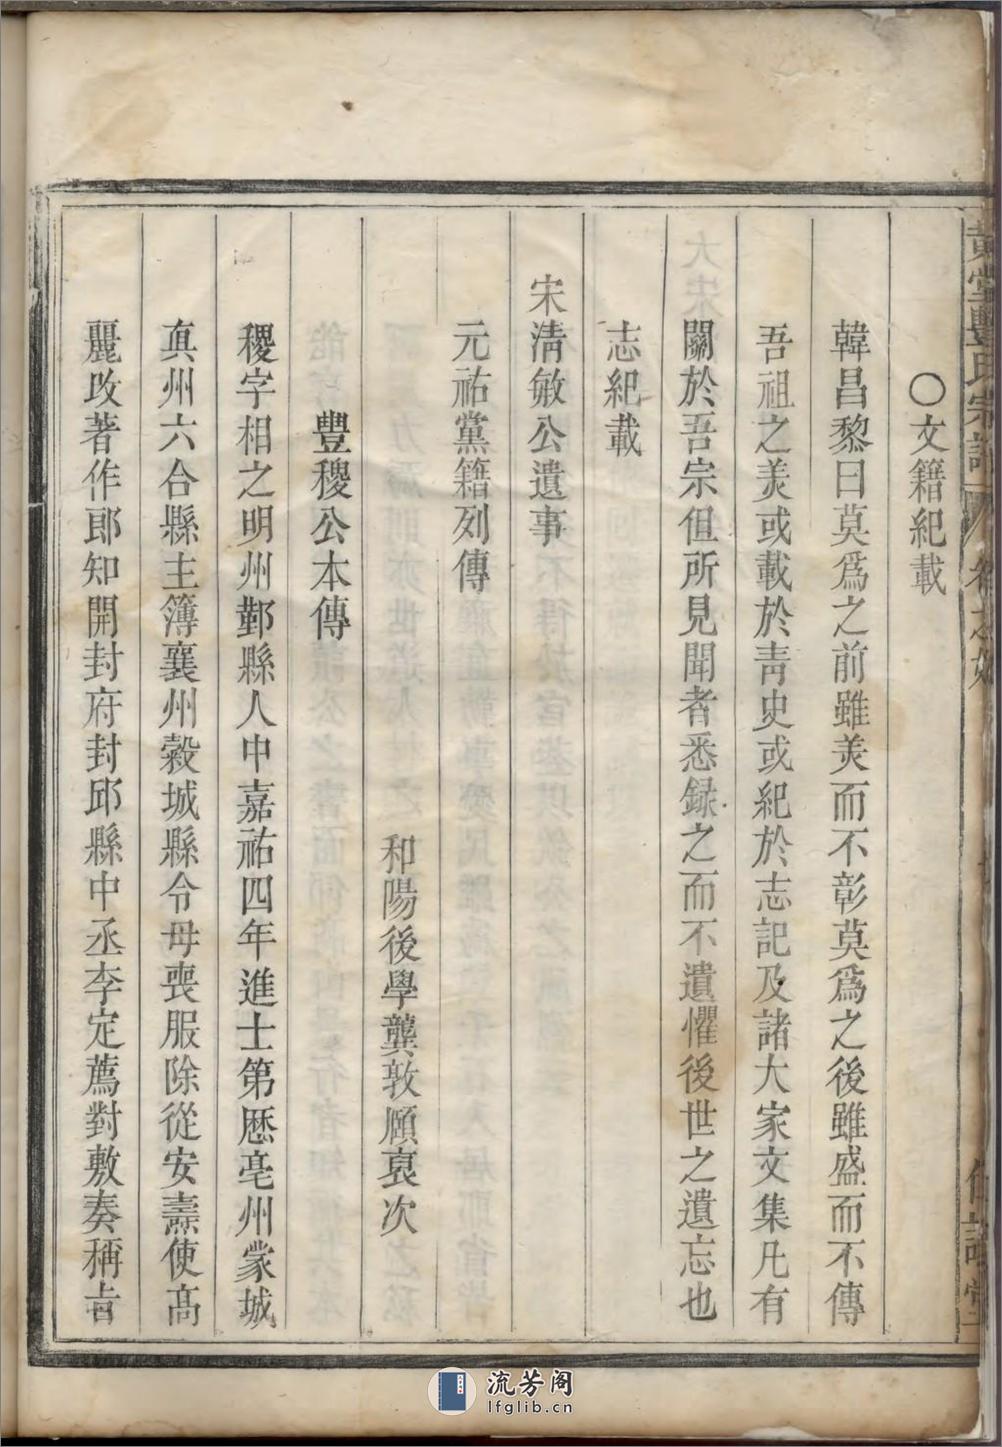 〇文籍紀載
韓昌黎曰莫爲之前雖羙而不彰莫爲之後雖盛而不傳
吾祖之羙或載於靑史或紀於志記及諸大家文集凡有
關於吾宗但所見聞者悉録之而不遺懼後世之遺忘也
志紀載
宋淸敏公遺事
元祐黨籍列傳
和陽後學龔敦頤裒次
豐稷公本傳
稷字相之明州鄞縣人中嘉祐四年進士第歷亳州蒙城
真州六合縣主簿襄州穀城縣令母喪服除從安燾使髙
麗改著作郎知開封府封邱縣中丞李定薦對敷奏稱旨
流芳阁
lfglib.cn